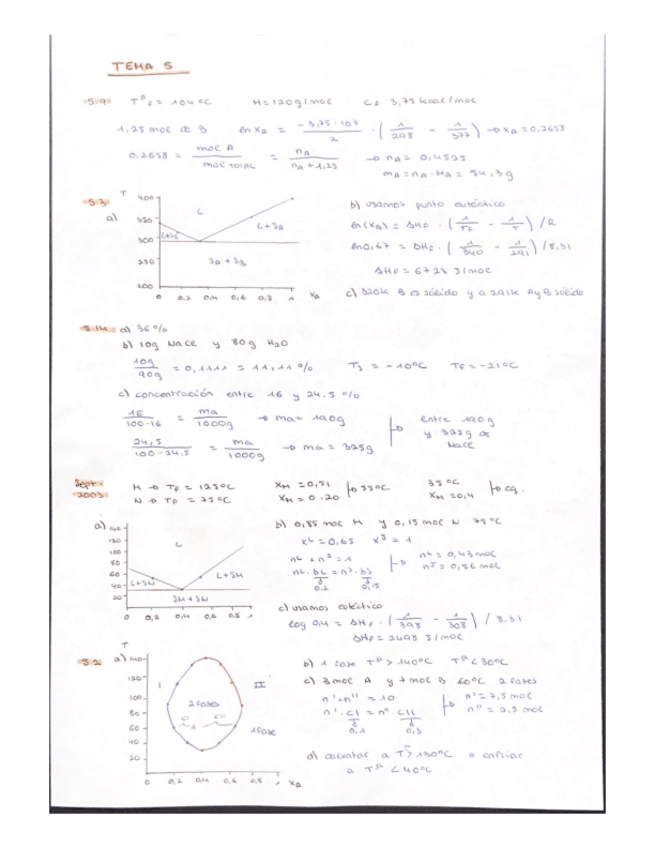 TEMA 5
5.9. Tª f = 104 ºC M = 120 g/mol Cf 3,75 kcal/mol
1,25 mol de B ln xA = -3,75·10³ / 2 · ( 1/298 - 1/377 ) → xA = 0,2658
0,2658 = mol A / mol TOTAL = nA / nA + 1,25 → nA = 0,4525
mA = nA · MA = 54,3 g
5.3. a)
T
400
350
300
250
200
L
L+SB
L+SA
SA + SB
0 0,2 0,4 0,6 0,8 1 XB
b) usamos punto eutéctico
ln(xB) = ΔHf · ( 1/Tf - 1/T ) / R
ln 0,67 = ΔHf · ( 1/340 - 1/291 ) / 8,31
ΔHf = 6723 J/mol
c) 320k B es sólido y a 291k A y B sólido
5.14. a) 36 %
b) 10g NaCl y 80g H2O
10g / 90g = 0,1111 = 11,11 % Ts = -10ºC Tf = -21ºC
c) concentración entre 16 y 24,5 %
16 / 100-16 = ma / 1000g → ma = 190g
24,5 / 100-24,5 = ma / 1000g → ma = 325g
entre 190g y 325g de NaCl
Sept. 2003
M → Tf = 125ºC XM = 0,71 55ºC 35ºC
N → Tf = 75ºC XM = 0.20 XM = 0,4
a)
140
120
100
80
60
40
20
L
L+SN
L+SM
SM + SN
0 0,2 0,4 0,6 0,8 1
b) 0,85 mol M y 0,15 mol N 75ºC
xL = 0,65 xS = 1
nL + nS = 1
nL · bL = nS · bS
0,2 0,15
nL = 0,43 mol
nS = 0,56 mol
c) usamos eutéctico
log 0,4 = ΔHf · ( 1/398 - 1/308 ) / 8,31
ΔHf = 2498 J/mol
5.2. a)
T
140
120
100
80
60
40
20
I
II
2 fases
CI
CII
1 fase
0 0,2 0,4 0,6 0,8 1 XB
b) 1 fase Tª > 140ºC Tª < 30ºC
c) 3 mol A y 7 mol B 60ºC 2 fases
n' + n'' = 10
n' · CI = n'' · CII
0,1 0,3
n' = 7,5 mol
n'' = 2,5 mol
d) calentar a Tª > 130ºC o enfriar
a Tª < 40ºC